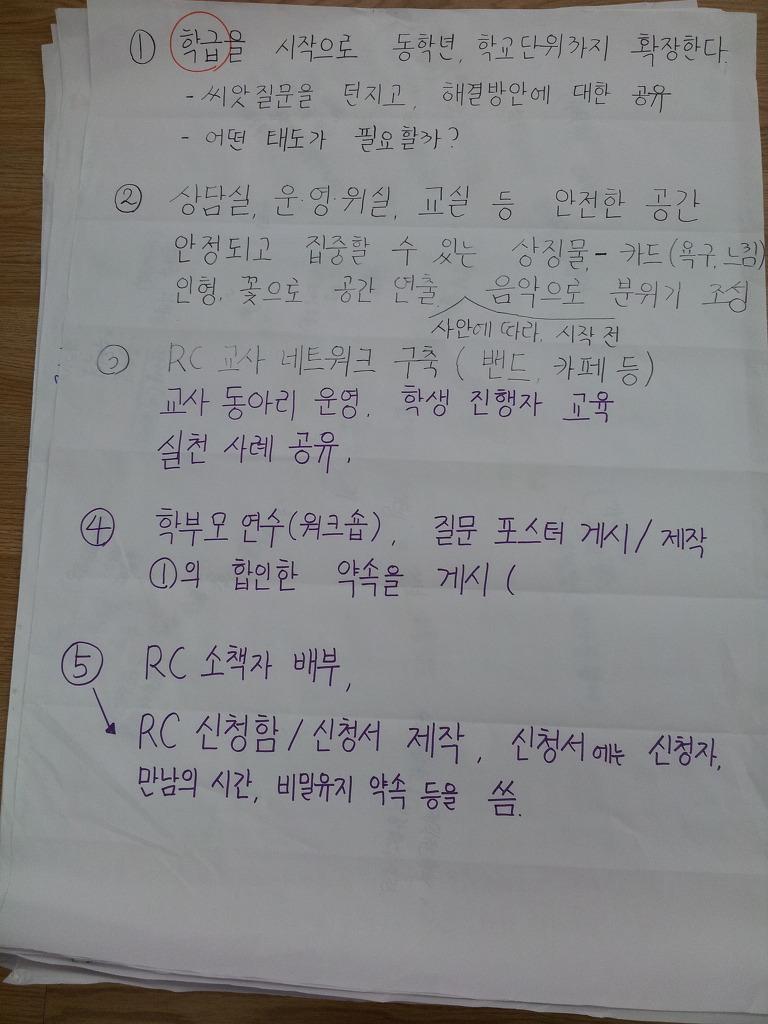 ① 학급을 시작으로 동학년, 학교단위까지 확장한다.
- 씨앗질문을 던지고, 해결방안에 대한 공유
- 어떤 태도가 필요할까?
② 상담실, 운·영·위실, 교실 등 안전한 공간
안정되고 집중할 수 있는 상징물, - 카드(욕구, 느낌)
인형, 꽃으로 공간 연출, 음악으로 분위기 조성
사안에 따라, 시작 전
③ RC 교사 네트워크 구축 (밴드, 카페 등)
교사 동아리 운영, 학생 진행자 교육
실천 사례 공유,
④ 학부모 연수(워크숍), 질문 포스터 게시/제작
①의 합인한 약속을 게시 (
⑤ RC 소책자 배부,
RC 신청함/신청서 제작, 신청서에는 신청자,
만남의 시간, 비밀유지 약속 등을 씀.